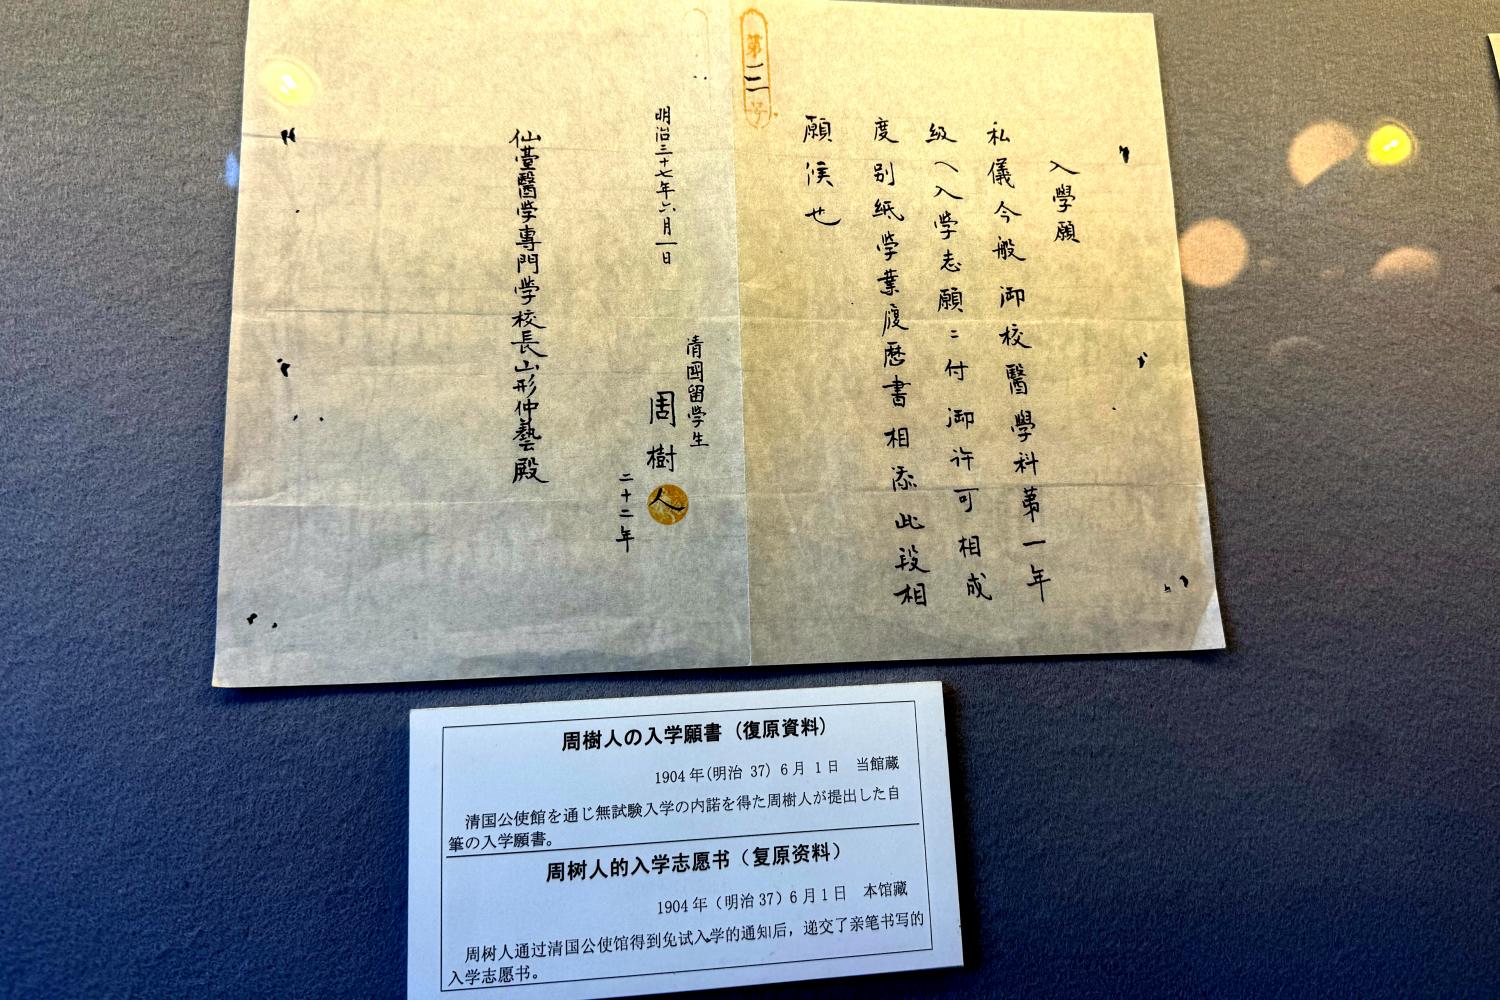 第二号
入學願
私儀今般御校醫學科第一年
級へ入学志願ニ付御许可相成
度別紙学業履歴書相添此段相
願候也
明治三十七年六月一日
清國留学生
周樹人
二十二年
仙臺醫学專門学校長山形仲藝殿
周樹人の入学願書（復原資料）
1904年(明治 37) 6月 1日 当館蔵
清国公使館を通じ無試験入学の内諾を得た周樹人が提出した自
筆の入学願書。
周树人的入学志愿书（复原资料）
1904年（明治37）6月1日 本馆藏
周树人通过清国公使馆得到免试入学的通知后，递交了亲笔书写的
入学志愿书。